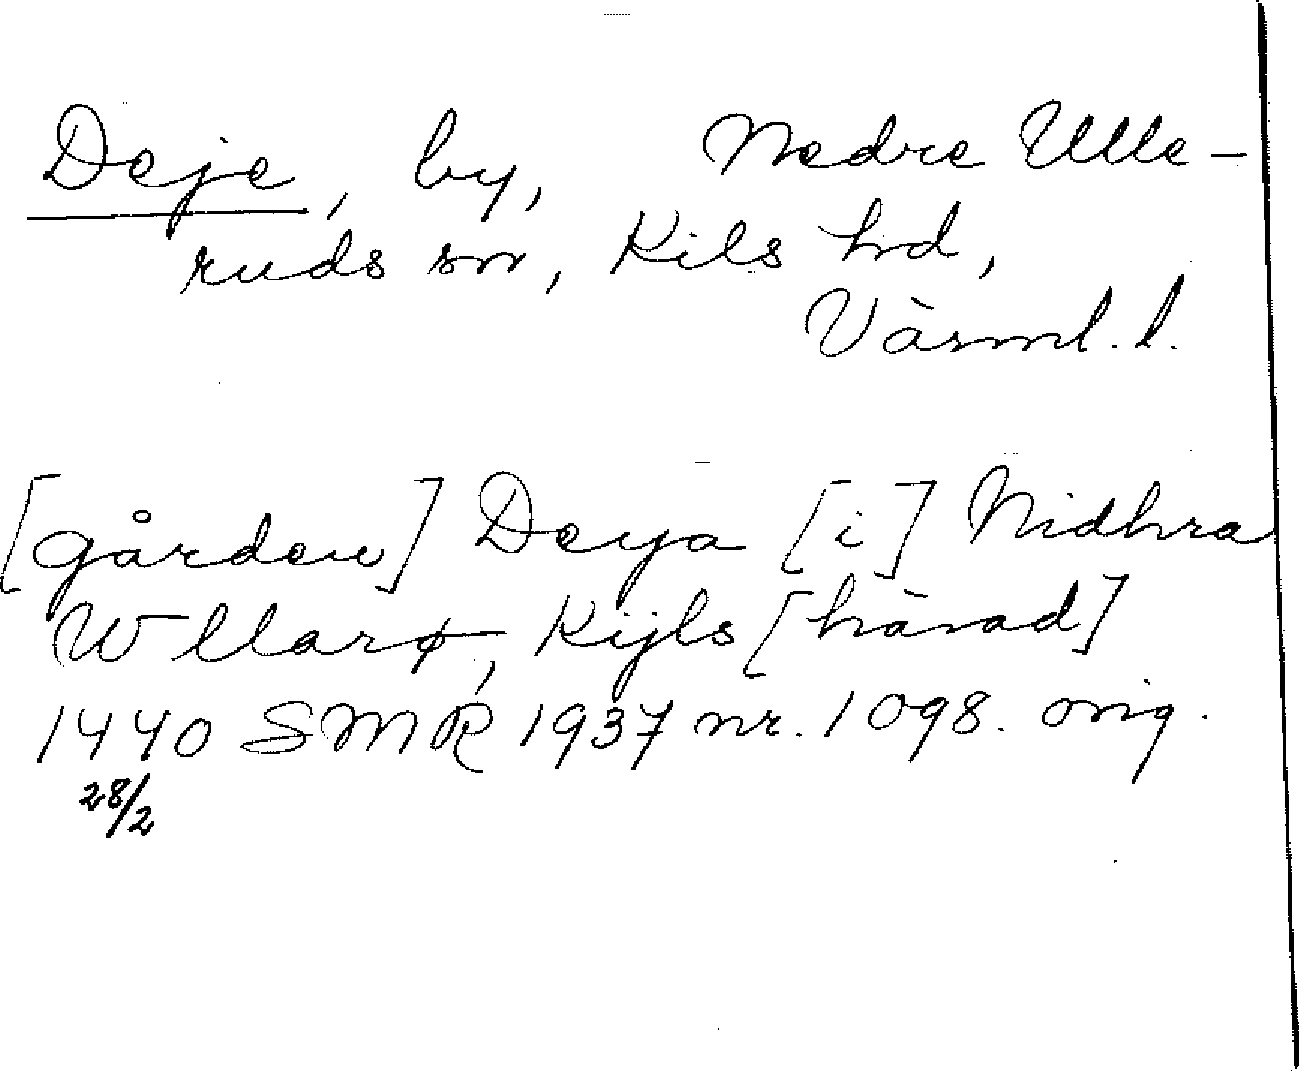 Deje, by, Nedre Ulle-
ruds sn, Kils hd,
Värml. l.
[gården] Deya [i] Nidhra
Wllarø, Kijls [härad]
1440 SMR 1937 nr. 1098. orig.
28/2